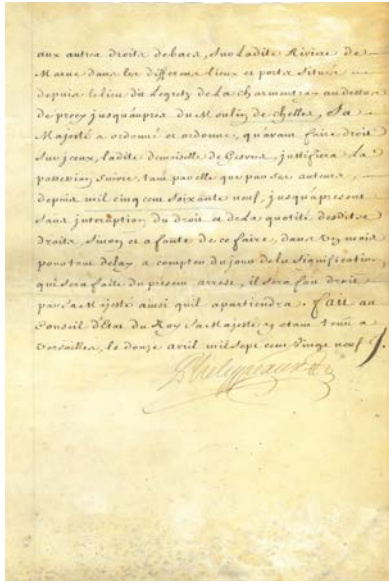 aux autres droits de bacs, Sur Ladite Riviere de
Marne dans les differens lieux et ports Situés
depuis le lieu du Gregetz de La Charmentray au dessous
de precy jusqu'auprés du Moulin de Chelles, Sa
Majesté a ordonné et ordonne, qu'avant faire droit
Sur iceux, ladite demoiselle de Gesvres, justifiera La
possession Suivie, tant par elle que par Ses auteurs,
depuis mil cinq cent soixante neuf, jusqu'a present
Sans interuption du droit et de La quotité desdits
droits, Sinon et a faute de ce faire, dans un mois
pour tout delay, a compter du jour de la Signification
qui Sera faite du present arrest, il Sera fait droit
par Sa Majesté ainsi quil apartiendra. Fait au
Conseil d'Etat du Roy Sa Majesté y etant tenu a
Versailles, le douze avril mil Sept cent vingt neuf.
Phelypeaux